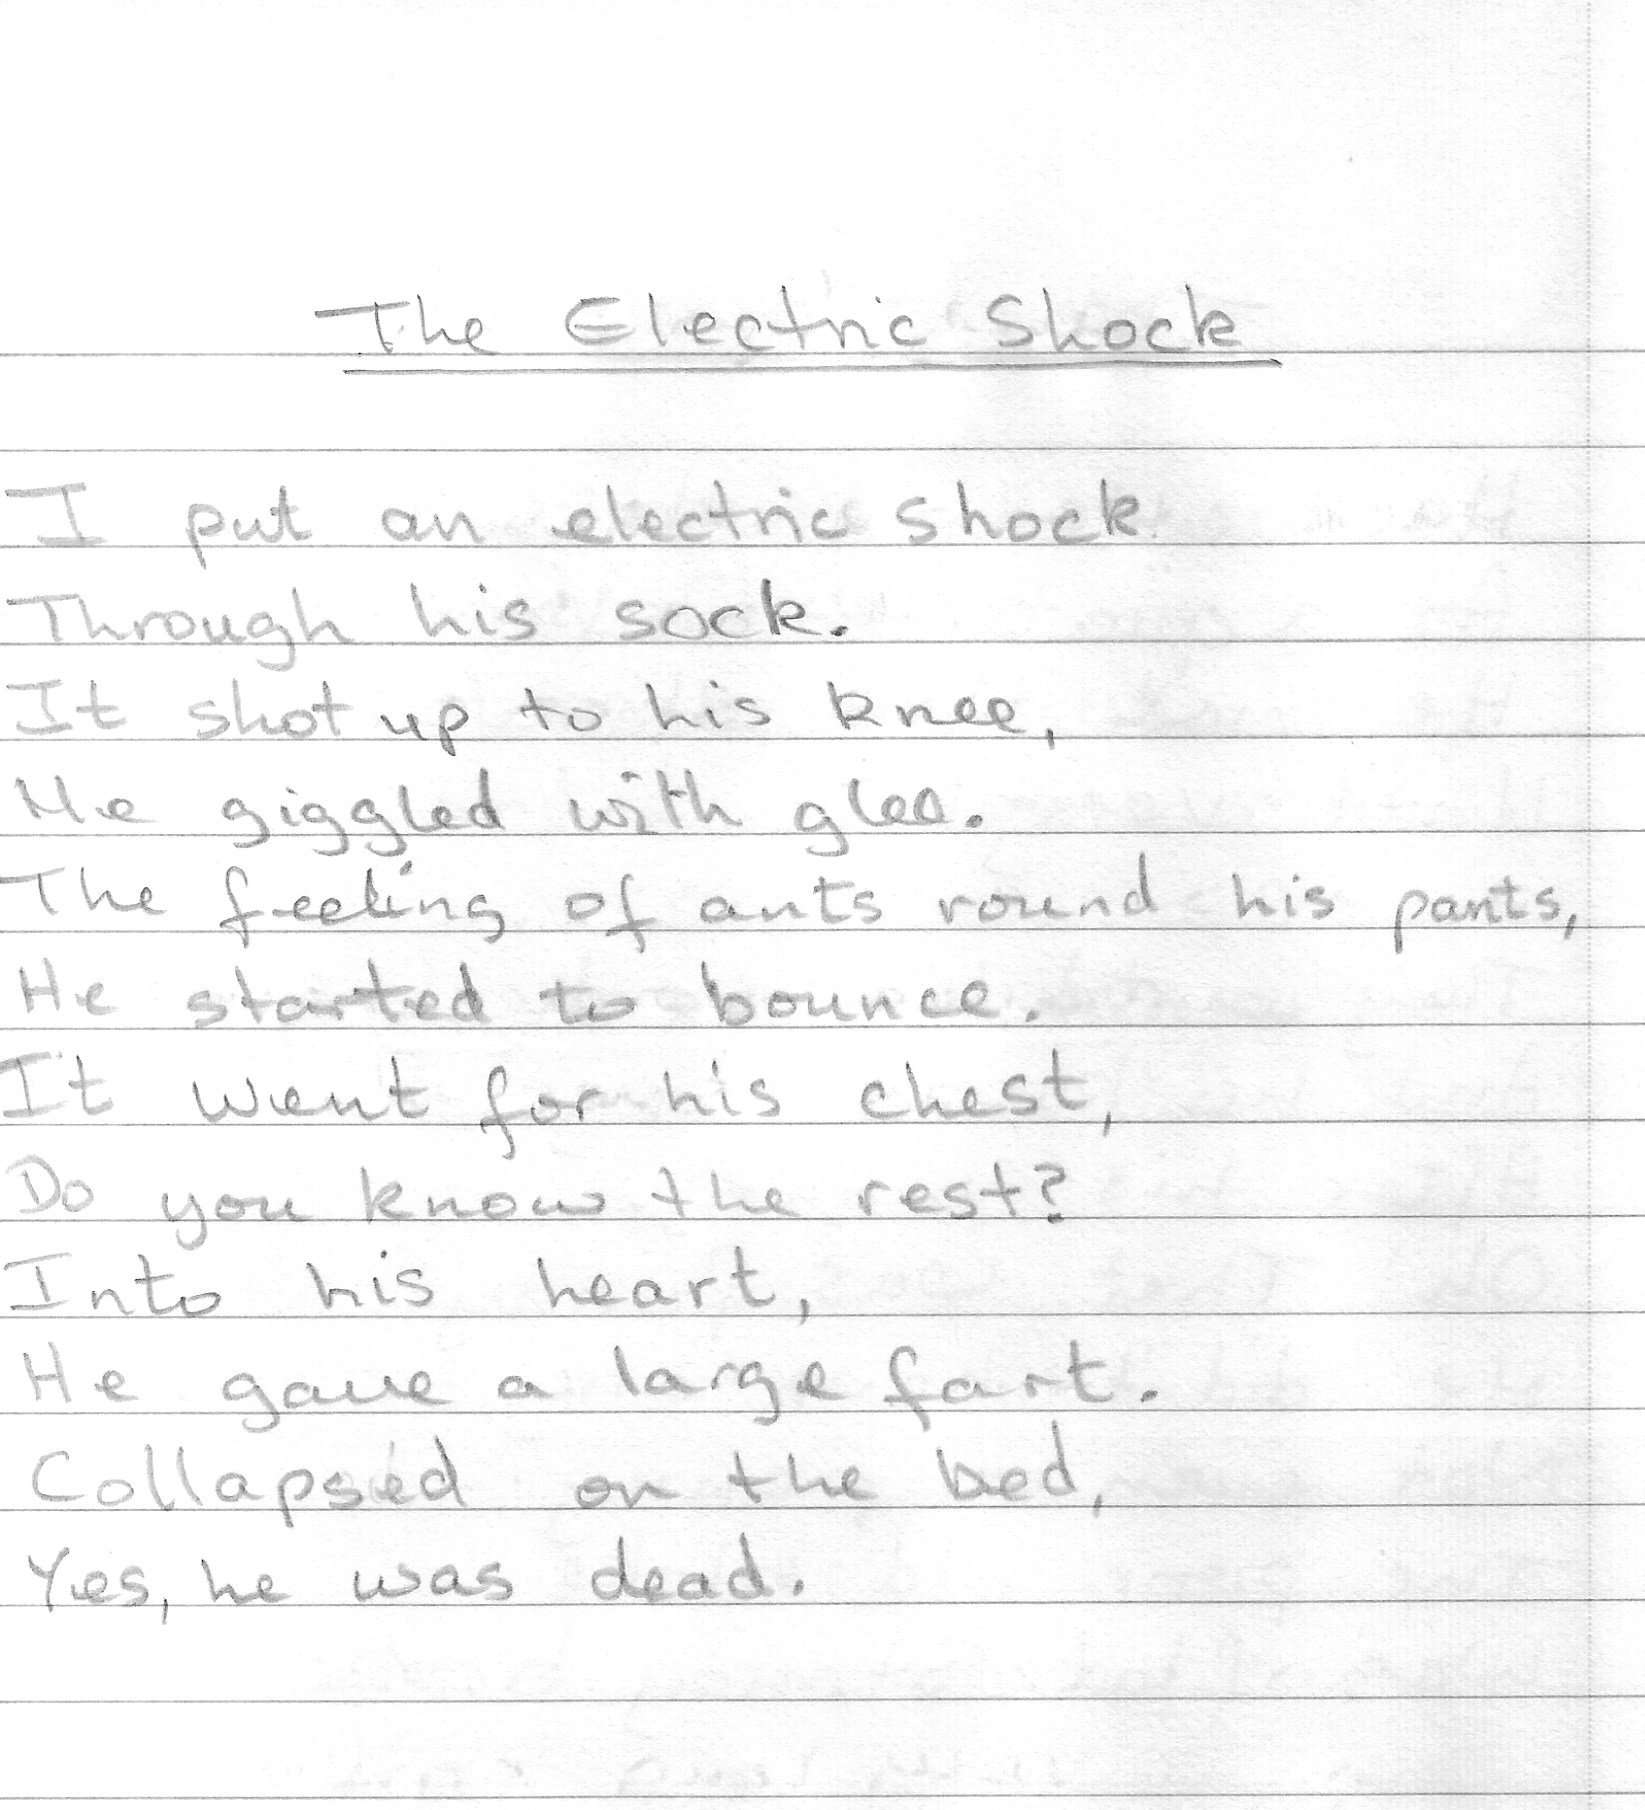 The Electric Shock
I put an electric shock
Through his sock.
It shot up to his knee,
He giggled with glee.
The feeling of ants round his pants,
He started to bounce.
It went for his chest,
Do you know the rest?
Into his heart,
He gave a large fart.
Collapsed on the bed,
Yes, he was dead.